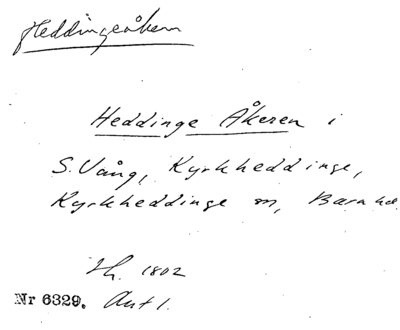 Heddingeåkern
Heddinge Åkeren i
S. Vång, Kyrkheddinge,
Kyrkheddinge sn, Bara hd.
1802
Nr 6329. Akt 1.